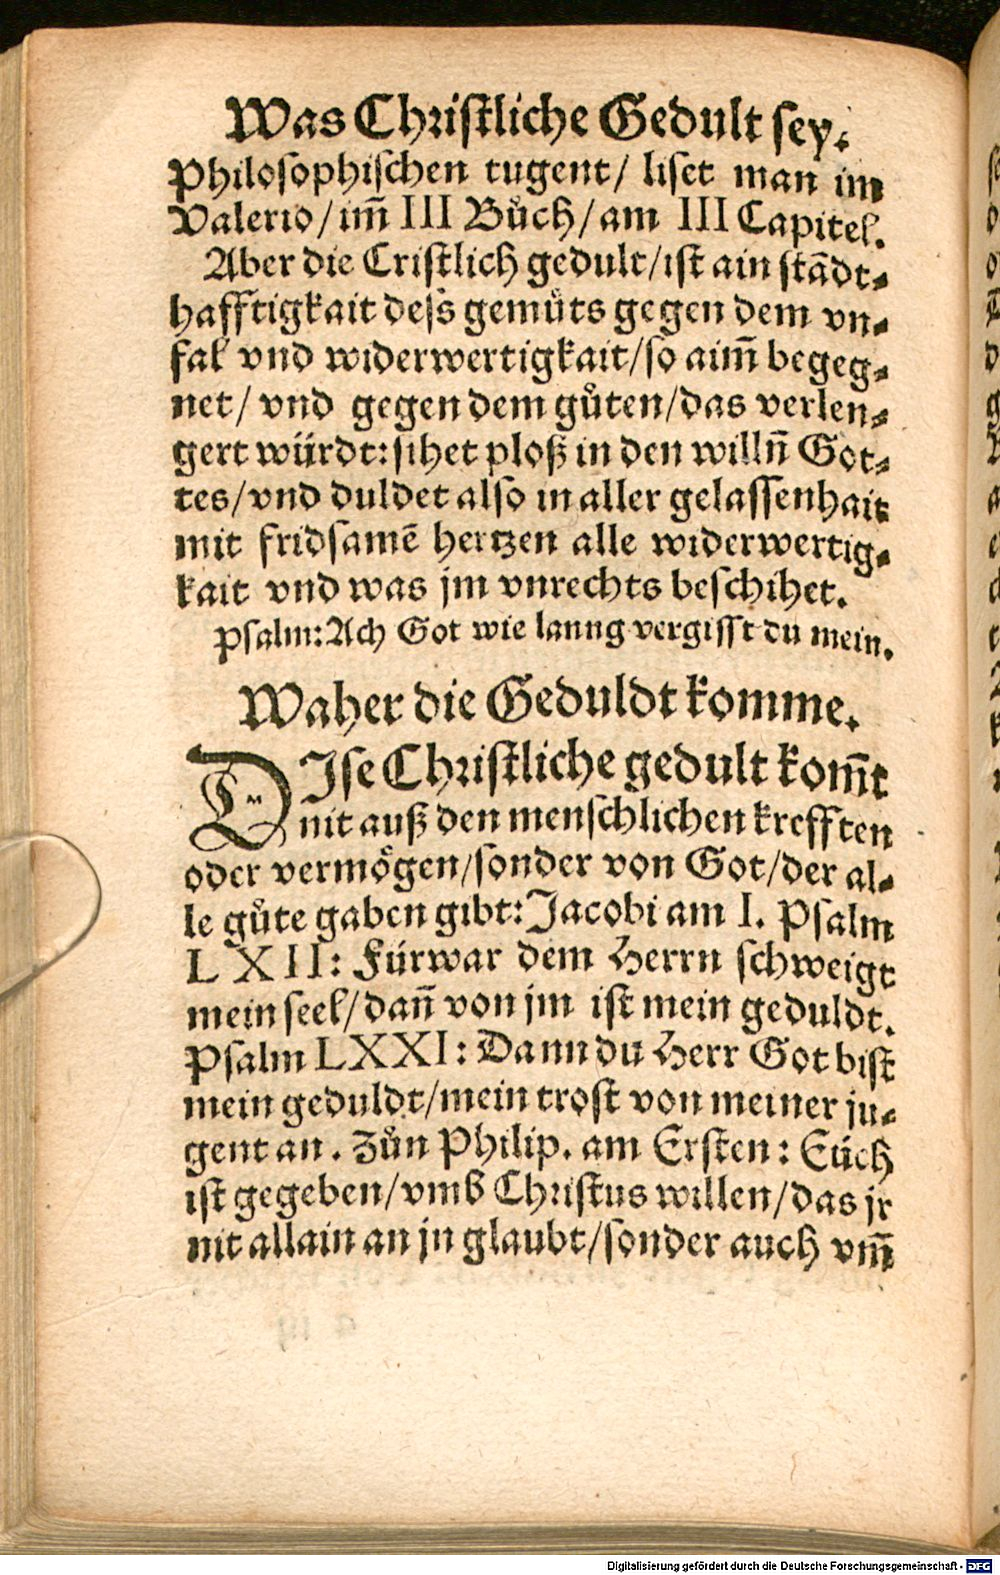 Was Christliche Gedult sey.
Philosophischen tugent/ liset man im
Valerio/ im̃ III Bůch/ am III Capitel.
Aber die Cristlich gedult/ ist ain stãdt-
hafftigkait deſs gemüts gegen dem vn-
fal vnd widerwertigkait/ so aim̃ begeg-
net/ vnd gegen dem gůten/ das verlen-
gert würdt: sihet ploß in den willñ Got-
tes/ vnd duldet also in aller gelassenhait
mit fridsamẽ hertzen alle widerwertig-
kait vnd was jm vnrechts beschihet.
Psalm: Ach Got wie lanng vergisst du mein.
Waher die Geduldt komme.
DIse Christliche gedult kom̃t
nit auß den menschlichen krefften
oder vermögen/ sonder von Got/ der al-
le gůte gaben gibt: Jacobi am I. Psalm
LXII: Fürwar dem Herrn schweigt
mein seel/ dañ von jm ist mein geduldt.
Psalm LXXI: Dann du Herr Got bist
mein geduldt/ mein trost von meiner ju-
gent an. Zůn Philip. am Ersten: Eüch
ist gegeben/ vmb Christus willen/ das jr
nit allain an jn glaubt/ sonder auch vm̃
Digitalisierung gefördert durch die Deutsche Forschungsgemeinschaft - DFG